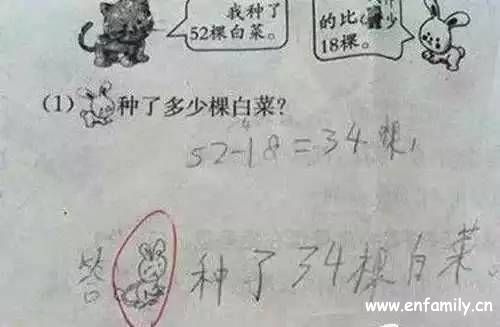 我种了
52棵白菜。
的比
少
18棵。
(1) 种了多少棵白菜?
52-18=34棵,
答 种了34棵白菜
www.enfamily.cn